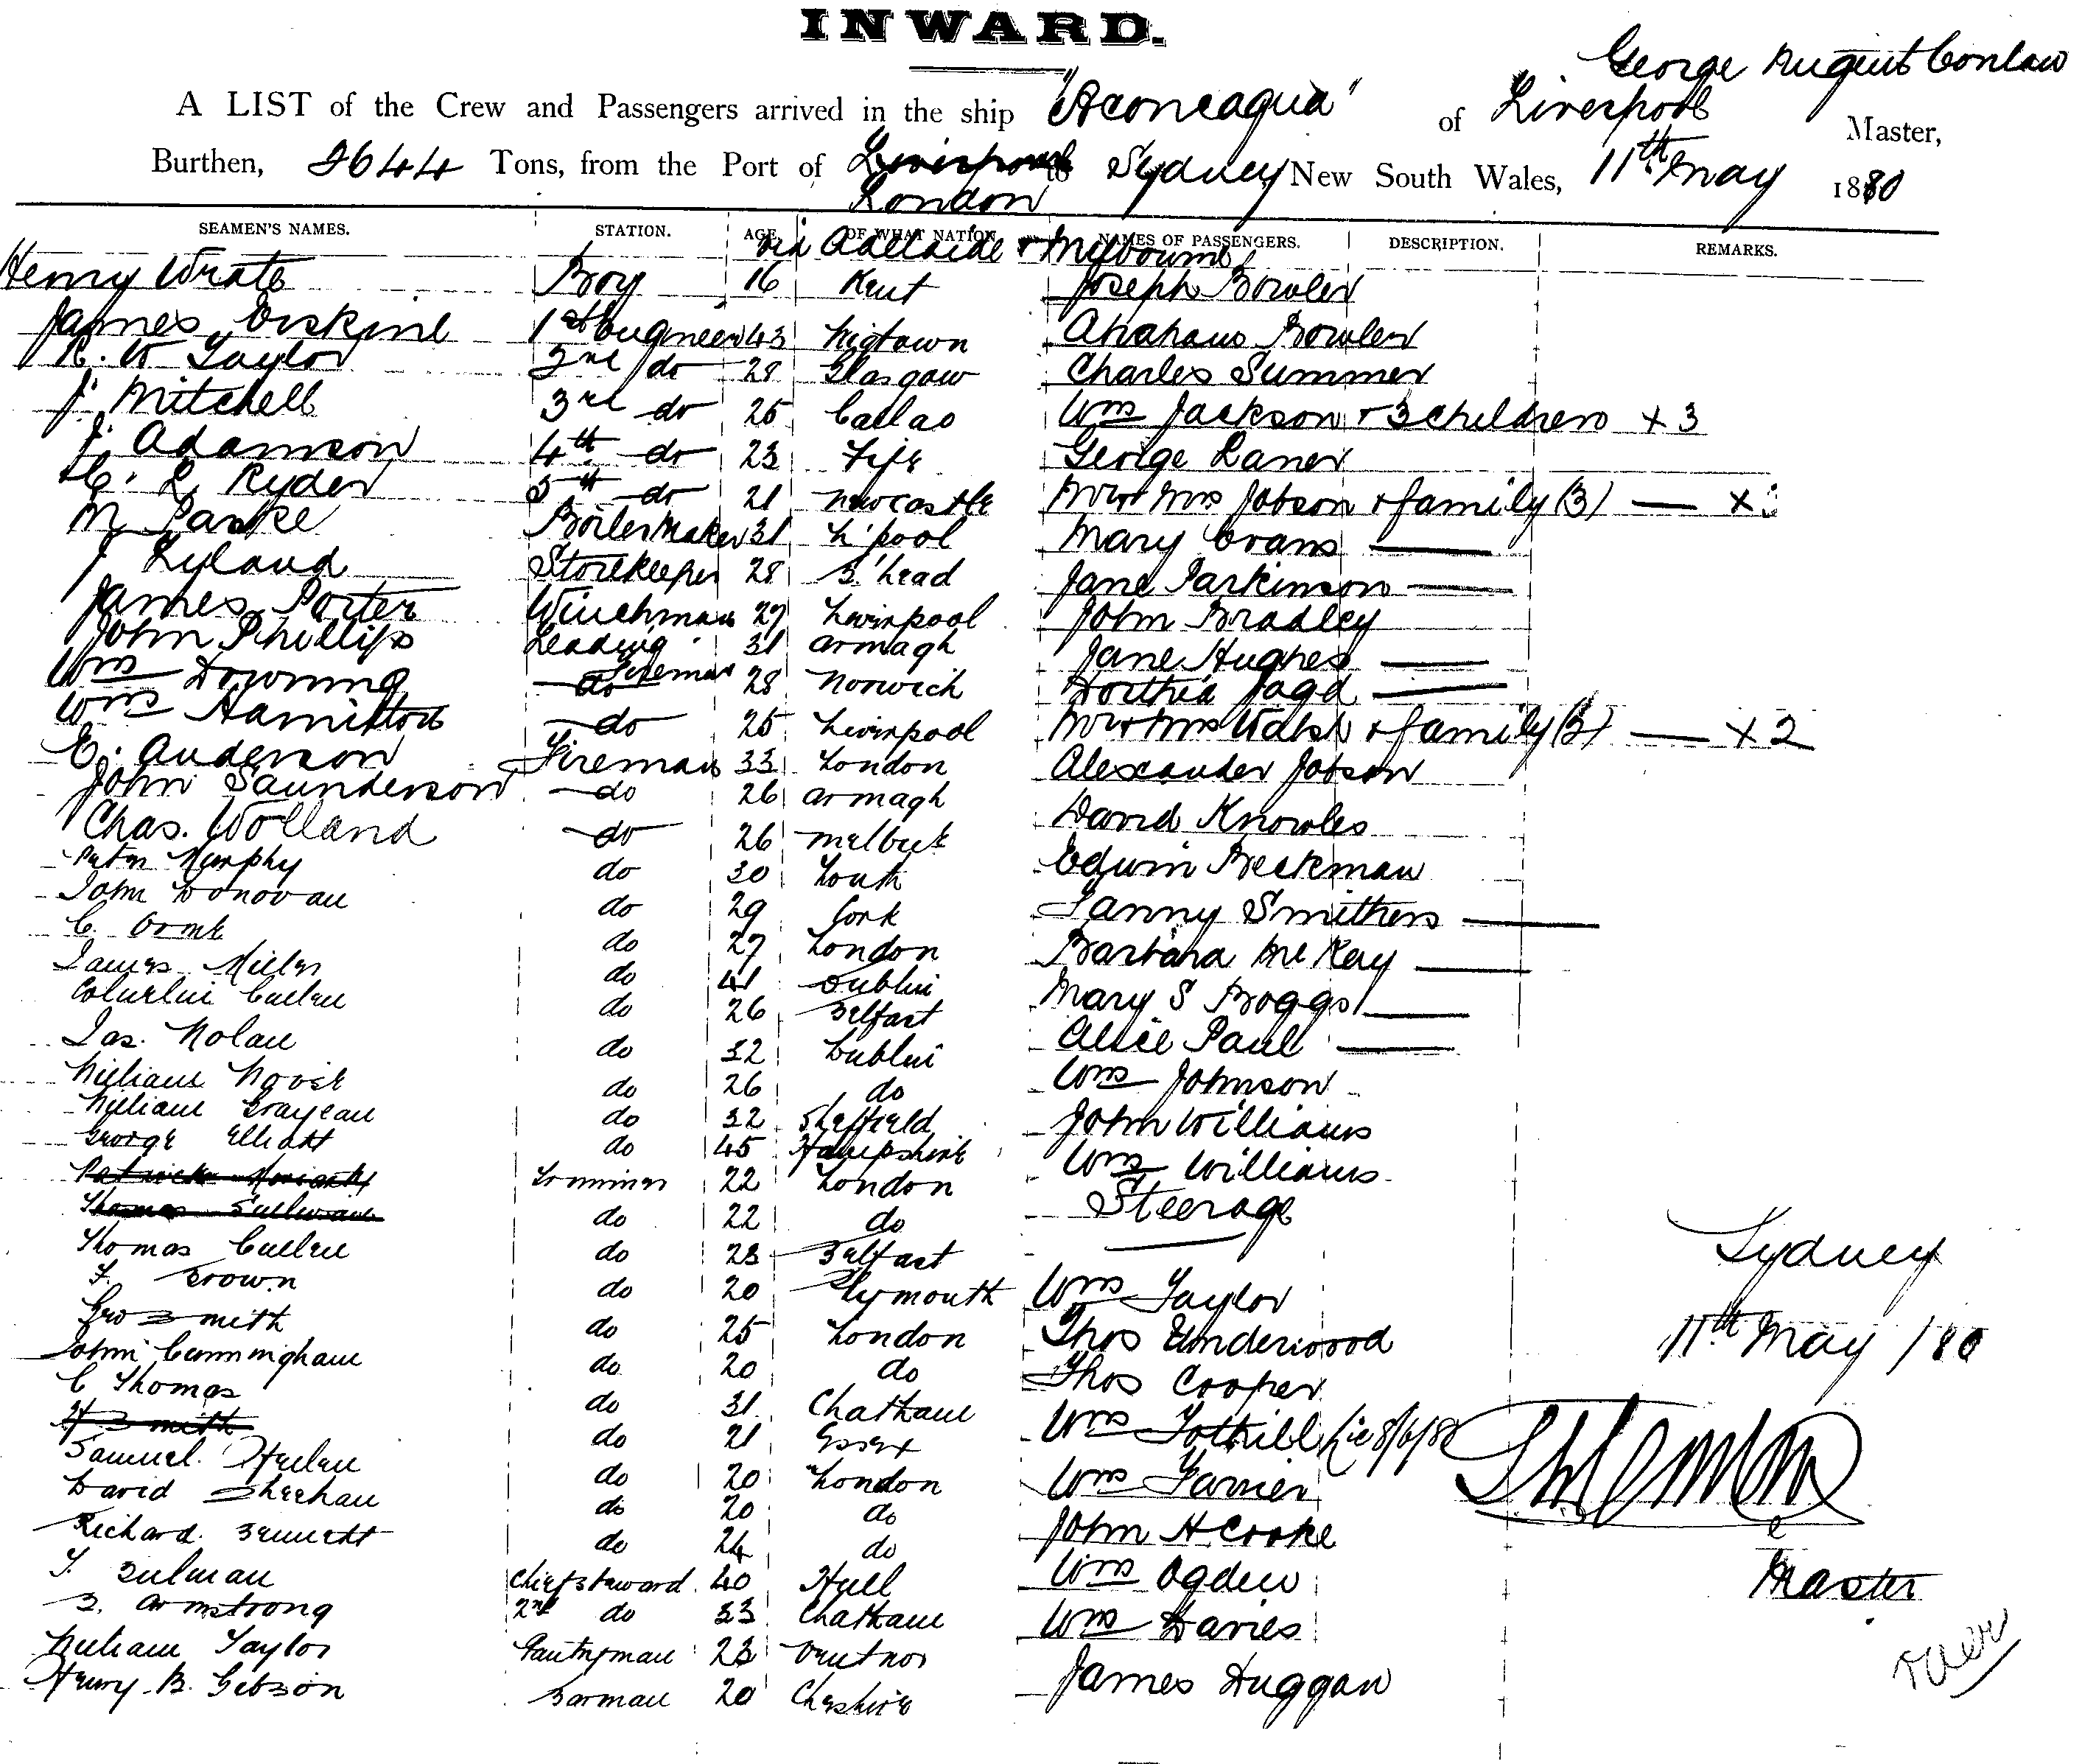 INWARD.
George Nugent Conlan
A LIST of the Crew and Passengers arrived in the ship "Aconcagua" of Liverpool Master,
Burthen, 2644 Tons, from the Port of Liverpool to Sydney New South Wales, 11th May 1880
London
via Adelaide & Melbourne
SEAMEN'S NAMES. STATION. AGE. OF WHAT NATION. NAMES OF PASSENGERS. DESCRIPTION. REMARKS.
Henry Wrate Boy 16 Kent Joseph Bowler
James Erskine 1st Engineer 43 Wigtown Bowler
R. W Taylor 2nd do 28 Glasgow Charles Summer
J Mitchell 3rd do 25 Callao Wm Jackson & 3 children x 3
J. Adamson 4th do 23 Fife George Laner
L. Ryder 5th do 21 Newcastle Mr & Mrs Jobson & family (3) — x
M Parke Boilermaker 31 L'pool Mary Evans —
J Ryland Storekeeper 28 B'head Jane Parkinson —
James Porter Winchman 27 Liverpool John Bradley
John Phillips Leading Fireman 31 Armagh Jane Hughes —
Wm Downing do 28 Norwich Jagd —
Wm Hamilton do 25 Liverpool Mr & Mrs Walsh & family (3) — x 2
E. Anderson Fireman 33 London Alexander Jobson
John Saunderson do 26 Armagh David Knowles
Chas. Wolland do 26 Edwin Beckman
Peter Murphy do 30 Louth Fanny Smithers —
John Donovan do 29 Cork Barbara McKay —
C. Orme do 27 London Mary S Boggs —
James Miler do 41 Dublin Alice Paul —
Cullen do 26 Belfast Wm Johnson
Jas. Nolan do 32 Dublin John Williams
William do 26 do Wm Williams
William do 32 Sheffield Steerage
George Elliott do 45 Hampshire
Patrick Moriarty Trimmer 22 London Wm Taylor
Thomas Sullivan do 22 do Thos Underwood
Thomas Cullen do 23 Belfast Thos Cooper
F. Brown do 20 Plymouth Wm Tothill 8/6/80
Geo Smith do 25 London Wm Farrier
John Cunningham do 20 do John H Cooke
C Thomas do 31 Chatham Wm Ogden
H Smith do 21 Essex Wm Davies
Samuel do 20 London James Duggan
David Sheehan do 20 do
Richard Bennett do 24 do
Chief Steward 40 Hull
B. Armstrong 2nd do 33 Chatham
William Taylor Pantryman 23 Ventnor
Henry B. Gibson Barman 20 Cheshire
Sydney
11th May /80
Master
over